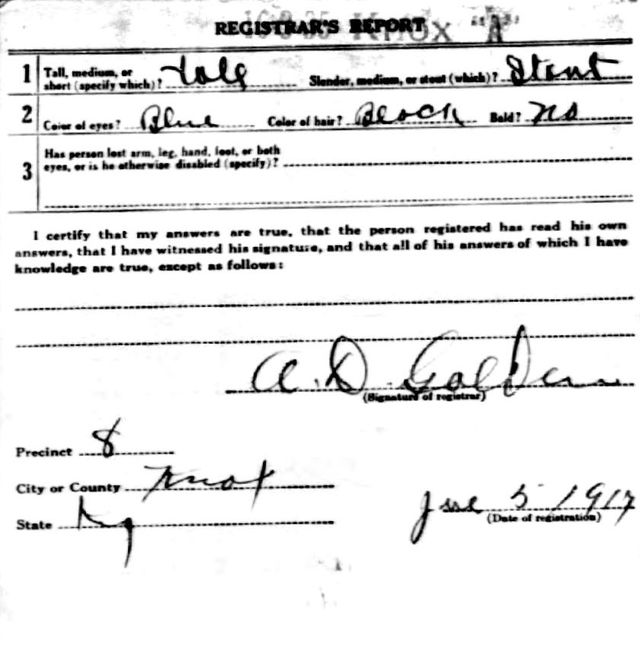 REGISTRAR'S REPORT
1 Tall, medium, or short (specify which)? tall Slender, medium, or stout (which)? Stout
2 Color of eyes? Blue Color of hair? Black Bald? No
3 Has person lost arm, leg, hand, foot, or both
eyes, or is he otherwise disabled (specify)?
I certify that my answers are true, that the person registered has read his own
answers, that I have witnessed his signature, and that all of his answers of which I have
knowledge are true, except as follows:
A. D. Golden
(Signature of registrar)
Precinct 8
City or County Knox
State Ky
June 5 1917
(Date of registration)